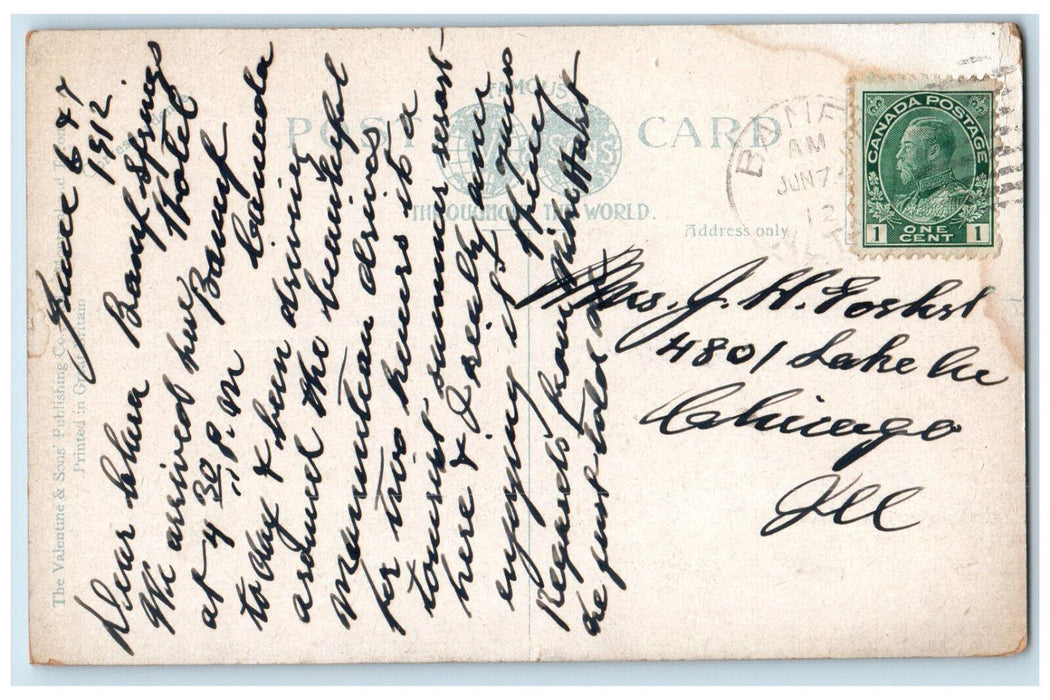 June 6th
1912
Dear Clara Banff Springs Hotel
We arrived here Banff Canada
at 4 30 P.M
to day & been driving
around the beautiful
mountain drives
for two hours its a
tourist summer resort
here & I sielly am
enjoying it
Regards from
POST CARD
FAMOUS
THROUGHOUT THE WORLD.
Address only
The Valentine & Sons' Publishing Co.
Printed in Great Britain
BANFF
AM
JUN 7
12
CANADA POSTAGE
1 ONE CENT 1
Mrs. J. H.
4801 Lake Ave
Chicago
Ill